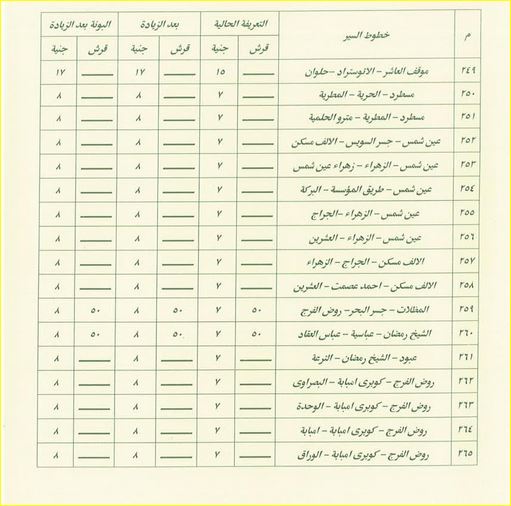 م خطوط السير التعريفة الحالية بعد الزيادة البونة بعد الزيادة
قرش جنية قرش جنية قرش جنية
٢٤٩ موقف العاشر – الاتوستراد – حلوان ــــ ١٥ ــــ ١٧ ــــ ١٧
٢٥٠ مسطرد – الحرية – المطرية ــــ ٧ ــــ ٨ ــــ ٨
٢٥١ مسطرد – المطرية – مترو الحلمية ــــ ٧ ــــ ٨ ــــ ٨
٢٥٢ عين شمس – جسر السويس – الالف مسكن ــــ ٧ ــــ ٨ ــــ ٨
٢٥٣ عين شمس – الزهراء – زهراء عين شمس ــــ ٧ ــــ ٨ ــــ ٨
٢٥٤ عين شمس – طريق المؤسسة – البركة ــــ ٧ ــــ ٨ ــــ ٨
٢٥٥ عين شمس – الزهراء – الجراج ــــ ٧ ــــ ٨ ــــ ٨
٢٥٦ عين شمس – الزهراء – العشرين ــــ ٧ ــــ ٨ ــــ ٨
٢٥٧ الالف مسكن – الجراج – الزهراء ــــ ٧ ــــ ٨ ــــ ٨
٢٥٨ الالف مسكن – احمد عصمت – العشرين ــــ ٧ ــــ ٨ ــــ ٨
٢٥٩ المظلات – جسر البحر – روض الفرج ٥٠ ٧ ٥٠ ٨ ٥٠ ٨
٢٦٠ الشيخ رمضان – عباسية – عباس العقاد ٥٠ ٧ ٥٠ ٨ ٥٠ ٨
٢٦١ عبود – الشيخ رمضان – الترعة ــــ ٧ ــــ ٨ ــــ ٨
٢٦٢ روض الفرج – كوبرى امبابة – البصراوى ــــ ٧ ــــ ٨ ــــ ٨
٢٦٣ روض الفرج – كوبرى امبابة – الوحدة ــــ ٧ ــــ ٨ ــــ ٨
٢٦٤ روض الفرج – كوبرى امبابة – امبابة ــــ ٧ ــــ ٨ ــــ ٨
٢٦٥ روض الفرج – كوبرى امبابة – الوراق ــــ ٧ ــــ ٨ ــــ ٨